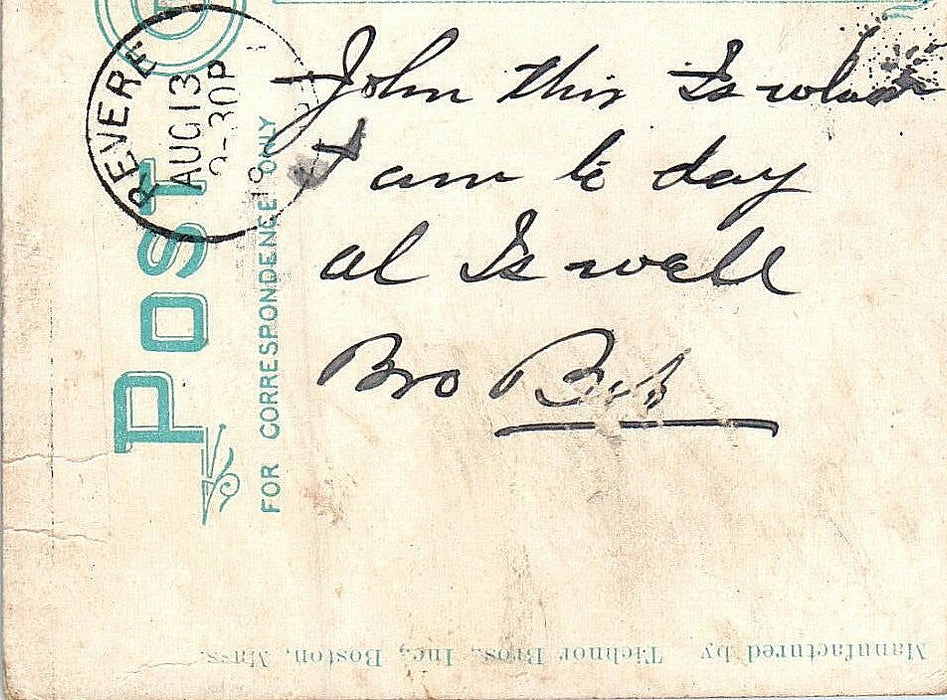 REVERE
AUG 13
30P
19
POST
FOR CORRESPONDENCE ONLY
John this Is
I am to day
al Is well
Bro Bob
Manufactured by Tichnor Bros., Inc., Boston, Mass.